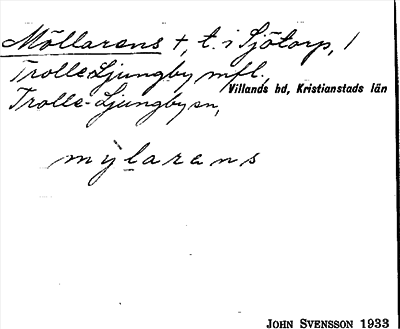 Möllarens †, t. i Sjötorp, 1
Trolle-Ljungby mfl.
Villands hd, Kristianstads län
Trolle-Ljungby sn,
mỳlarens
JOHN SVENSSON 1933